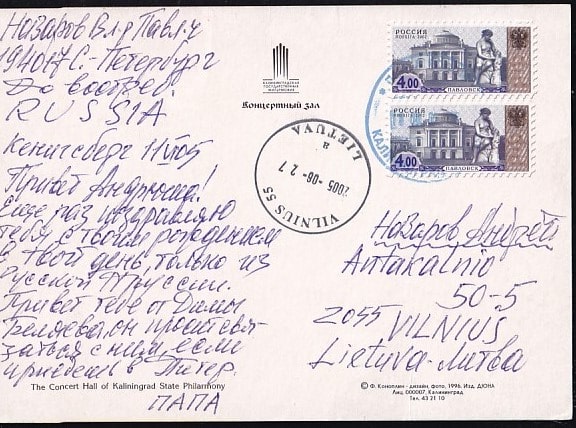 Назаров Вл-р Павл-ч
194017 С.-Петербург
До востреб.
RUSSIA
Кенигсберг
Привет Андрюша!
Еще раз поздравляю
тебя с твоим рождением
в твой день, только из
русской Пруссии.
Привет тебе от Димы
Беляева, он просит связ-
заться с ним, если
приедешь в Питер.
ПАПА
The Concert Hall of Kaliningrad State Philarmony
КАЛИНИНГРАДСКАЯ
ГОСУДАРСТВЕННАЯ
ФИЛАРМОНИЯ
Концертный зал
LIETUVA
a
2005 -06- 2 7
VILNIUS 55
РОССИЯ
ROSSIJA 2002
4.00
ПАВЛОВСК
РОССИЯ
ROSSIJA 2002
4.00
ПАВЛОВСК
Назаров Андрей
Antakalnio
50-5
2055 VILNIUŠ
Lietuva-Литва
© Ф. Коноплин - дизайн, фото, 1996. Изд. ДЮНА
Лиц. 000007, Калининград
Тел. 43 21 10